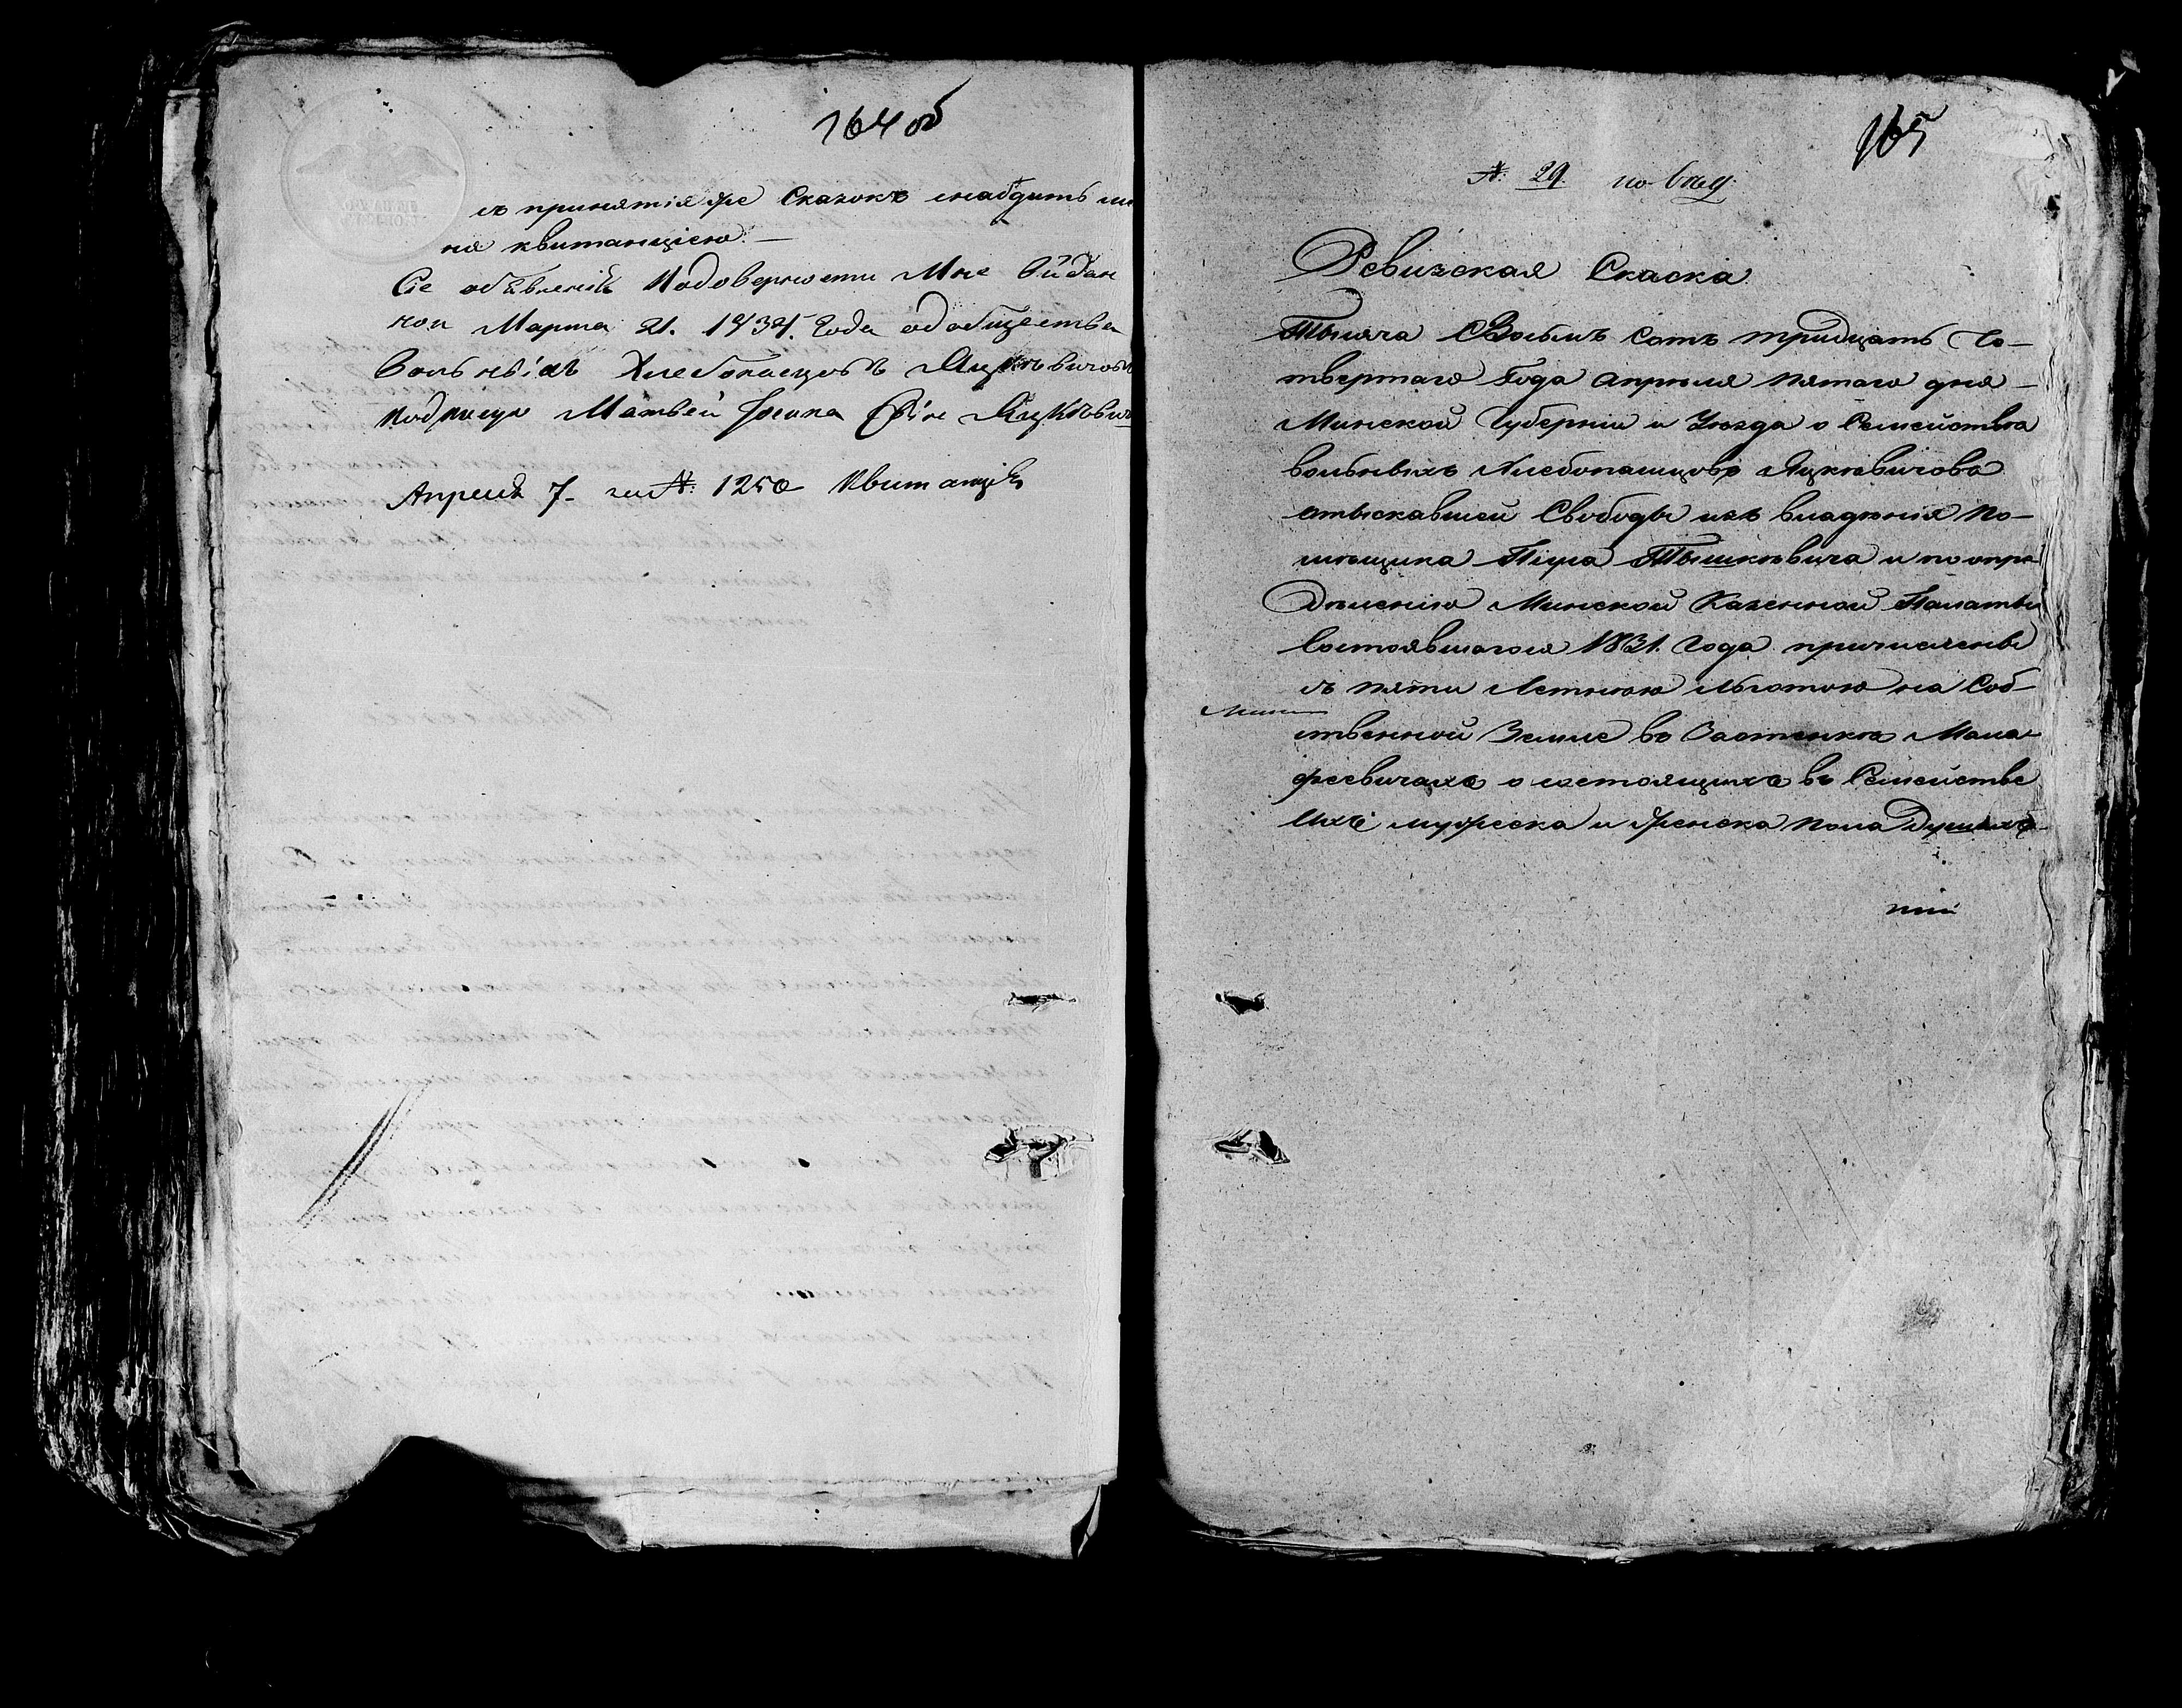 164 об
съ принятія же Сказокъ снабдить ме
ня квитанціею.—
Сіе объявленій подоверности Мне выдан
ной Марта 21. 1834. Года од общества
Вольныхъ Хлебопашцовъ Яцкевичовъ
подписуя Матвей Сынъ Яцкевичъ
Апреля 7. за №: 1250 Квитанція
165
№: 29. по вѣд:
Ревизская Скаска
Тысяча Восьмъ сотъ тридцать Че-
твертаго Года апреля пятаго дня
Минской Губерніи и Уезда о Семейства
вольныхъ Хлебопашцовъ Яцкевичова
атыскавшей Свободы изъ владенія По-
мещика Піуса Тышкѣвича и по опре
деленію Минской Казенной Палаты
Состоявшагося 1831. Года причислены
съ пяти Летнюю льготою на Соб-
ственной Земле въ Застенке Мала
феевичахъ о состоящихъ въ Семействе
Ихъ мужеска и женска пола Душахъ